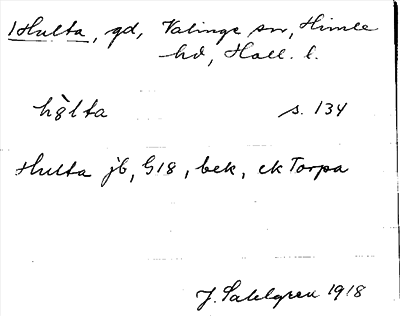 Hulta, gd, Valinge sn, Himle
hd, Hall. l.
hùlta s. 134
Hulta jb, G18, bek, ek Torpa
J. Sahlgren 1918